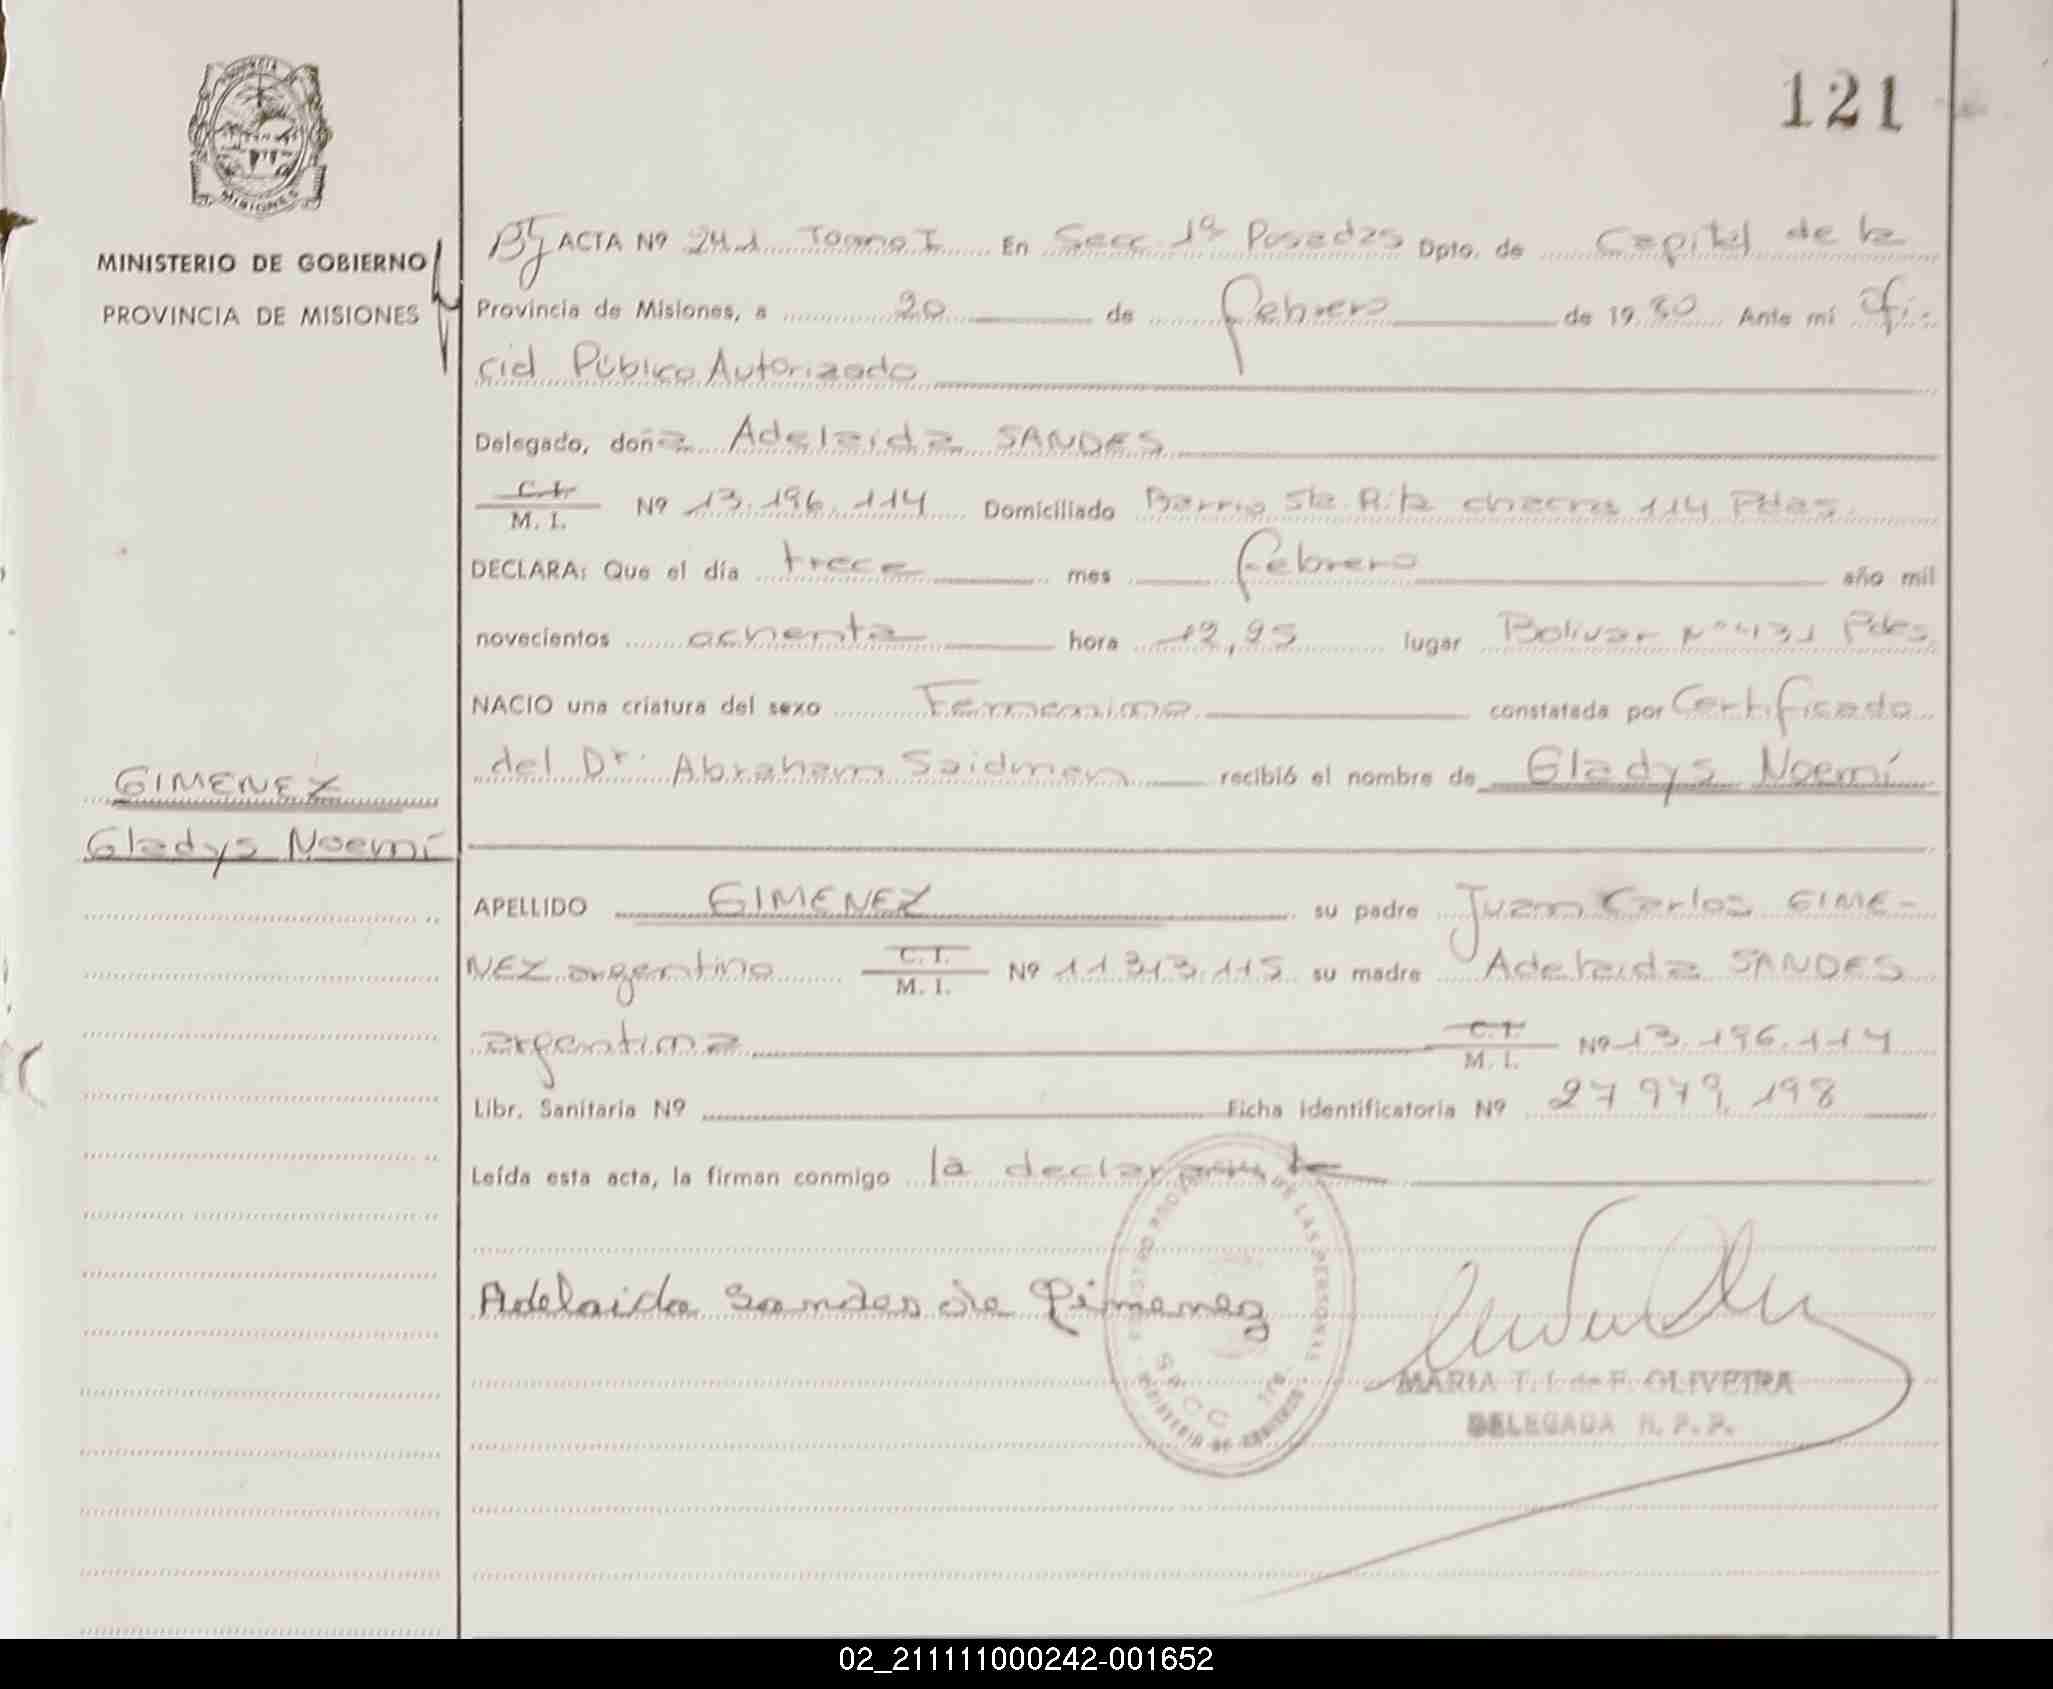 121
PROVINCIA
MISIONES
MINISTERIO DE GOBIERNO
PROVINCIA DE MISIONES
ACTA Nº 241 Tomo I En Secc. 1ª Posadas Dpto. de Capital de la
Provincia de Misiones, a 20 de febrero de 1980 Ante mí Ofi-
cial Público Autorizado
Delegado, doña Adelaida SANDES
C.I.
M. I. Nº 13.196.114 Domiciliado Barrio Sta. Rita chacra 114 Pdas.
DECLARA: Que el día trece mes febrero año mil
novecientos ochenta hora 12,25 lugar Bolivar Nº 431 Pdas.
NACIO una criatura del sexo Femenino constatada por Certificado
del Dr. Abraham Saidman recibió el nombre de Gladys Noemí
GIMENEZ
Gladys Noemí
APELLIDO GIMENEZ su padre Juan Carlos GIME-
NEZ argentino C.I. M. I. Nº 11.313.115 su madre Adelaida SANDES
argentina C.I. M. I. Nº 13.196.114
Libr. Sanitaria Nº Ficha identificatoria Nº 27 979.198
Leída esta acta, la firman conmigo la declarante
Adelaida Sandes de Gimenez
DE LAS PERSONAS
SECC. 1ra.
MINISTERIO DE GOBIERNO
MARIA T. I. de F. OLIVEIRA
DELEGADA R. P. P.
02_211111000242-001652